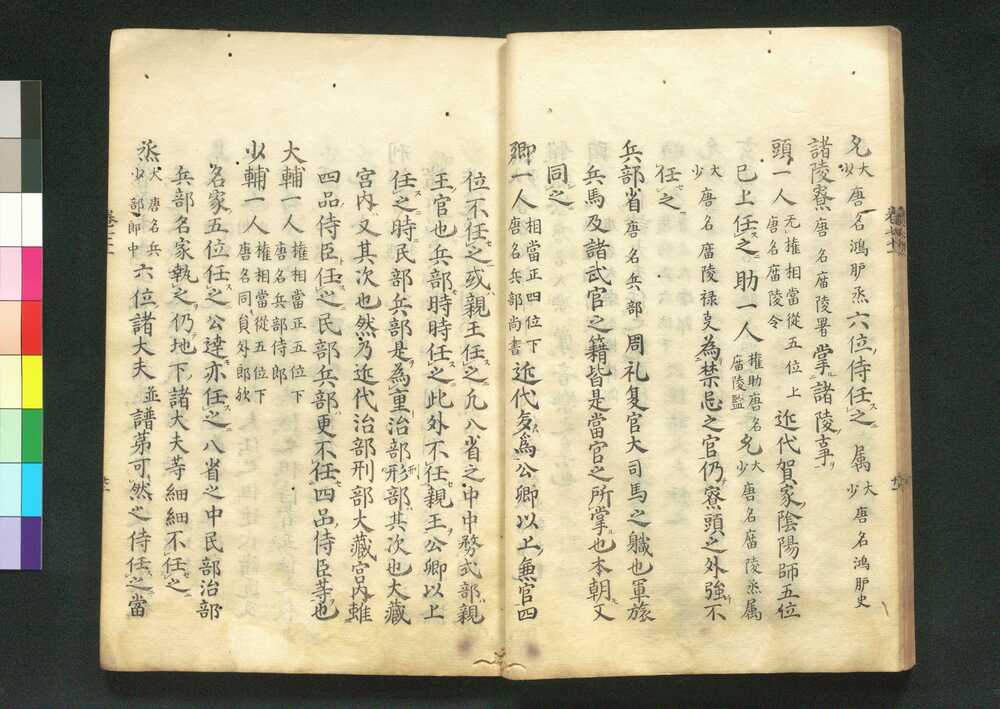 允大少唐名鴻臚丞六位侍任之　属大少唐名鴻臚史
諸陵寮唐名廟陵署掌諸陵事
頭一人无権相當從五位上唐名廟陵令近代賀家陰陽師五位
已上任之助一人権助唐名廟陵監允大少唐名廟陵丞属
大少唐名廟陵禄叓為禁忌之官仍寮頭之外強不
任之
兵部省唐名兵部周礼夏官大司馬之軄也軍旅
兵馬及諸武官之籍皆是當官之所掌也本朝又
同之
卿一人相當正四位下唐名兵部尚書近代多爲公卿以上兼官四
位不任之或親王任之凢八省之中中務式部親
王官也兵部時時任之此外不任親王公卿以上
任之時民部兵部是為重治部刑部其次也大藏
宮内又其次也然乃近代治部刑部大藏宮内雖
四品侍臣任之民部兵部更不任四品侍臣等也
大輔一人権相當正五位下唐名兵部侍郎
少輔一人権相當從五位下唐名同員外郎欤
名家五位任之公達亦任之八省之中民部治部
兵部名家執之仍地下諸大夫等細細不任之
丞大少唐名兵部郎中六位諸大夫並譜苐可然之侍任之當